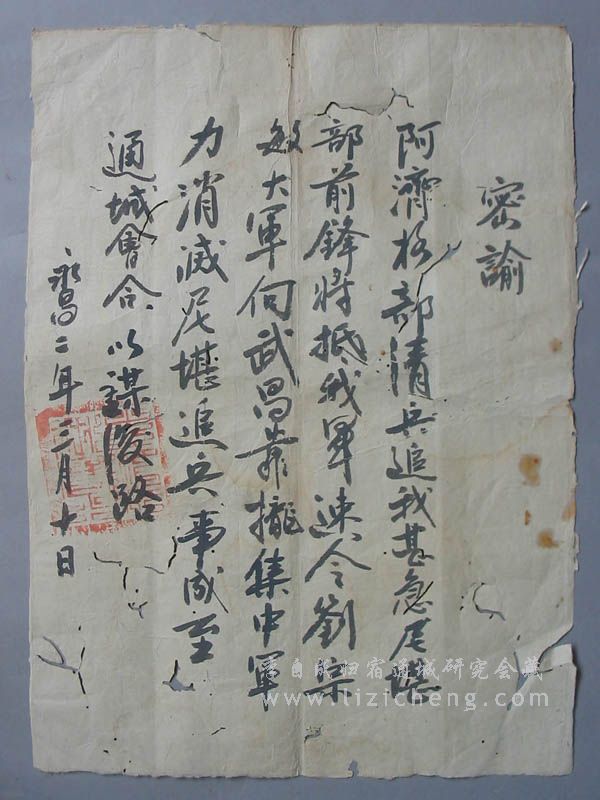 密諭
阿濟格部清兵追我甚急尼堪
部前鋒將抵我軍速令劉宗
敏大軍向武昌靠攏集中軍
力消滅尼堪追兵事成至
通城會合以謀後路
永昌二年三月十日
李自成归宿通城研究会藏
www.lizicheng.com